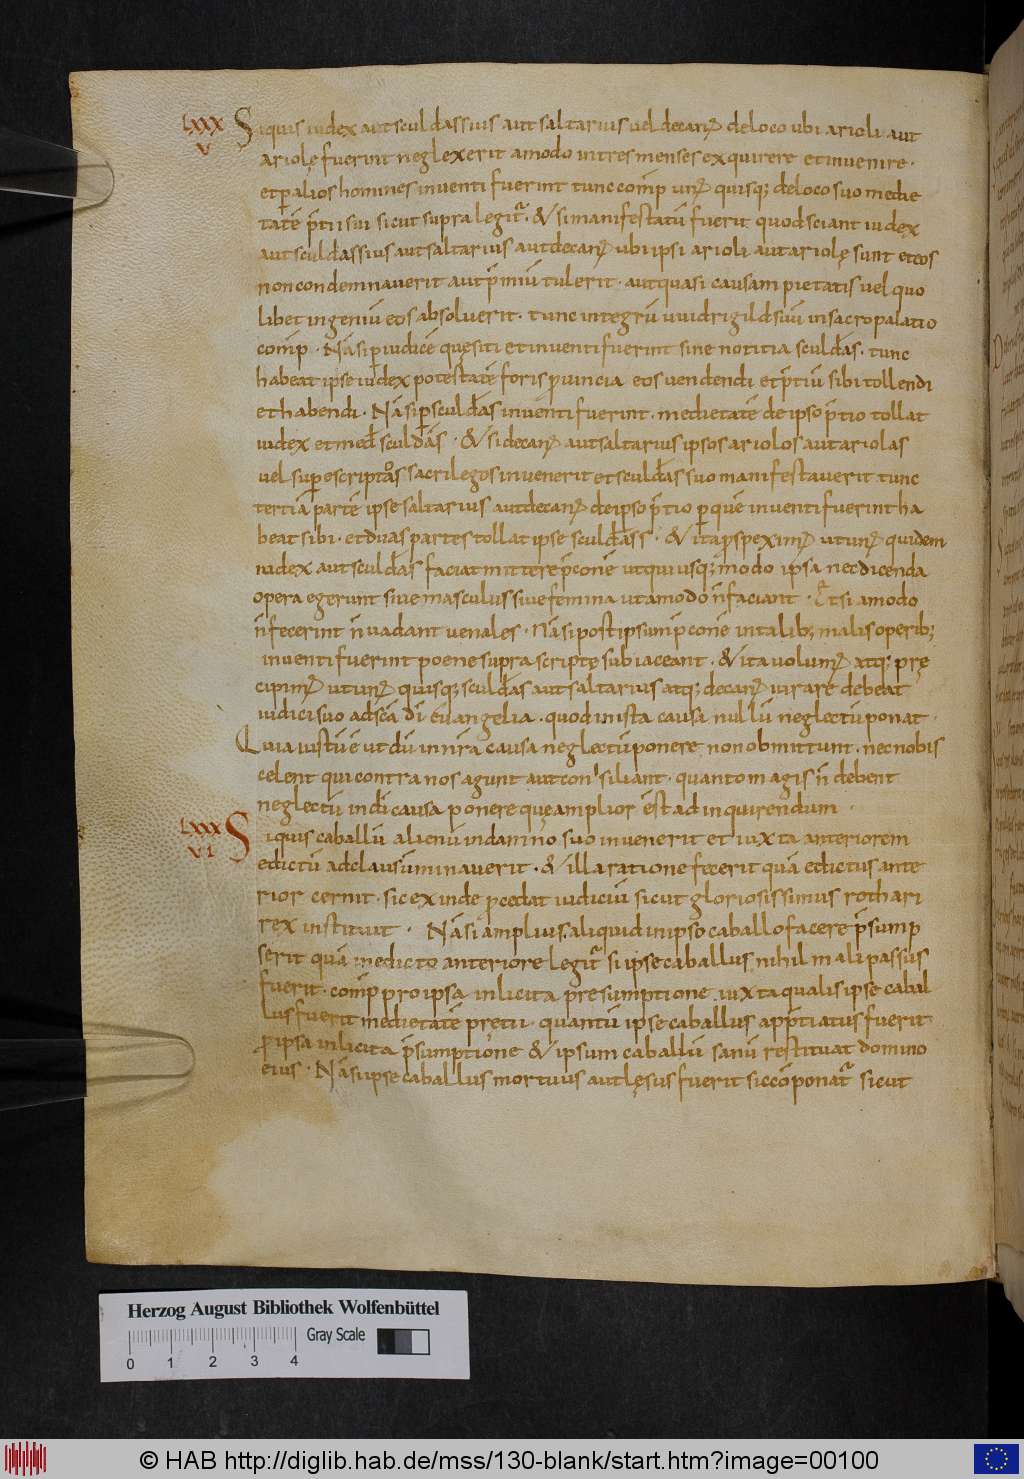 LXXXV Siquis iudex aut sculdassius aut saltarius vel decanꝰ de loco ubi arioli aut
ariolę fuerint neglexerit amodo in tres menses exquirere et invenire ·
et ꝑ alios homines inventi fuerint tunc comp̄ unꝰ quisq; de loco suo medie
tatē p̄tii sui sicut supra legit᷑ · & si manifestatū fuerit quod sciant iudex
aut sculdassius aut saltarius aut decanꝰ ubi ipsi arioli aut ariolę sunt et eos
non condemnaverit aut p̄miū tulerit · aut quasi causam pietatis vel quo
libet ingeniū eos absolverit · tunc integrū uuidrigild suū in sacro palatio
comp̄ · Nā si ꝑ iudicē quęsiti et inventi fuerint sine notitia sculdās · tunc
habeat ipse iudex potestatē foris ꝓvincia eos vendendi et p̄tiū sibi tollendi
et habendi · Nā si ꝑ sculdās inventi fuerint · medietatē de ipso p̄tio tollat
iudex et med̄ sculdās · & si decanꝰ aut saltarius ipsos ariolos aut ariolas
vel suꝑ escriptos sacrilegos invenerit et sculdās suo manifestaverit tunc
tertiā partē ipse saltarius aut decanꝰ de ipso p̄tio ꝑ quē inventi fuerint ha
beat sibi · et duas partes tollat ipse sculdass · & ita ꝑspeximꝰ ut unꝰ quidem
iudex aut sculdās faciat mittere p̄conē ut qui usq; modo ipsa nec dicenda
opera egerunt sive masculus sive femina ut amodo n̄ faciant · & si amodo
n̄ fecerint n̄ vadant venales · Nā si post ipsum p̄cone in talib; malis operib;
inventi fuerint poene supra scriptę subiaceant · & ita volumꝰ atq; prę
cipimꝰ ut unꝰ quisq; sculdās aut saltarius atq; decanꝰ iurare debeat
iudici suo ad sc̄a dī evangelia · quod in ista causa nullū neglectū ponat ·
Quia iustū ē ut dū in n̄ra causa neglectū ponere non obmittunt · nec nobis
celent qui contra nos agunt aut consiliant · quanto magis n̄ debent
neglectū in dī causa ponere que amplior est ad inquirendum ·
LXXXVI Siquis caballū alienū in damno suo invenerit et iuxta anteriorem
edictū ad clausū minaverit · & illa ratione fecerit quā edictus ante
rior cernit · sic exinde ꝓcedat iudiciū sicut gloriosissimus rothari
rex instituit · Nā si amplius aliquid in ipso caballo facere p̄sump
serit quā in edicto anteriore legit᷑ si ipse caballus nihil mali passus
fuerit · comp̄ pro ipsa inlicita presumptione iuxta qualis ipse cabal
lus fuerit medietatē pretii · quantū ipse caballus app̄tiatus fuerit
ꝓ ipsa inlicita p̄sumptione & ipsum caballū sanū restituat domino
eius · Nā si ipse caballus mortuus aut lęsus fuerit sic cōponat᷑ sicut
Herzog August Bibliothek Wolfenbüttel
Gray Scale
0 1 2 3 4
© HAB http://diglib.hab.de/mss/130-blank/start.htm?image=00100